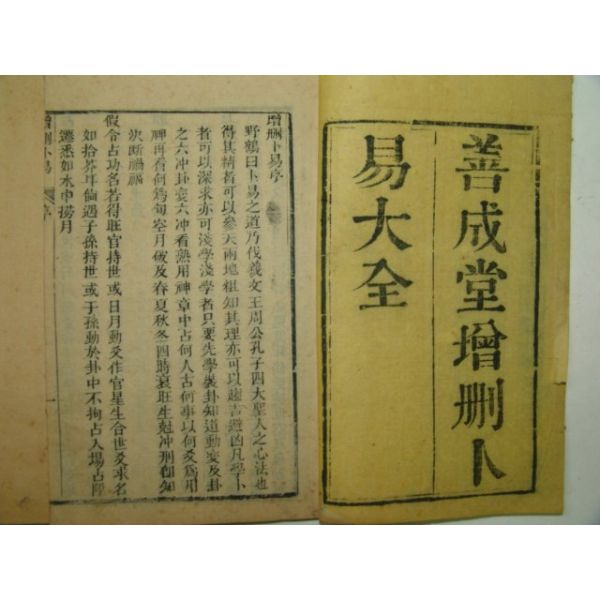 善成堂增删卜
易大全
增删卜易序
野鶴曰卜易之道乃伏羲文王周公孔子四大聖人之心法也
得其精者可以參天兩地粗知其理亦可以趨吉避凶凡學卜
者可以深求亦可淺學淺學者只要先學裝卦知道動变及卦
之六冲卦变六冲看熟用神章中占何人占何事以何爻爲用
神再看何爲旬空月破及春夏秋冬四時衰旺生尅冲刑即知
决断禍福
假令占功名若得旺官持世或日月動爻作官星生合世爻求名
如拾芥耳倘遇子孫持世或子孫動於卦中不拘占入場占陞
遷悉如水中撈月
增删卜易
序